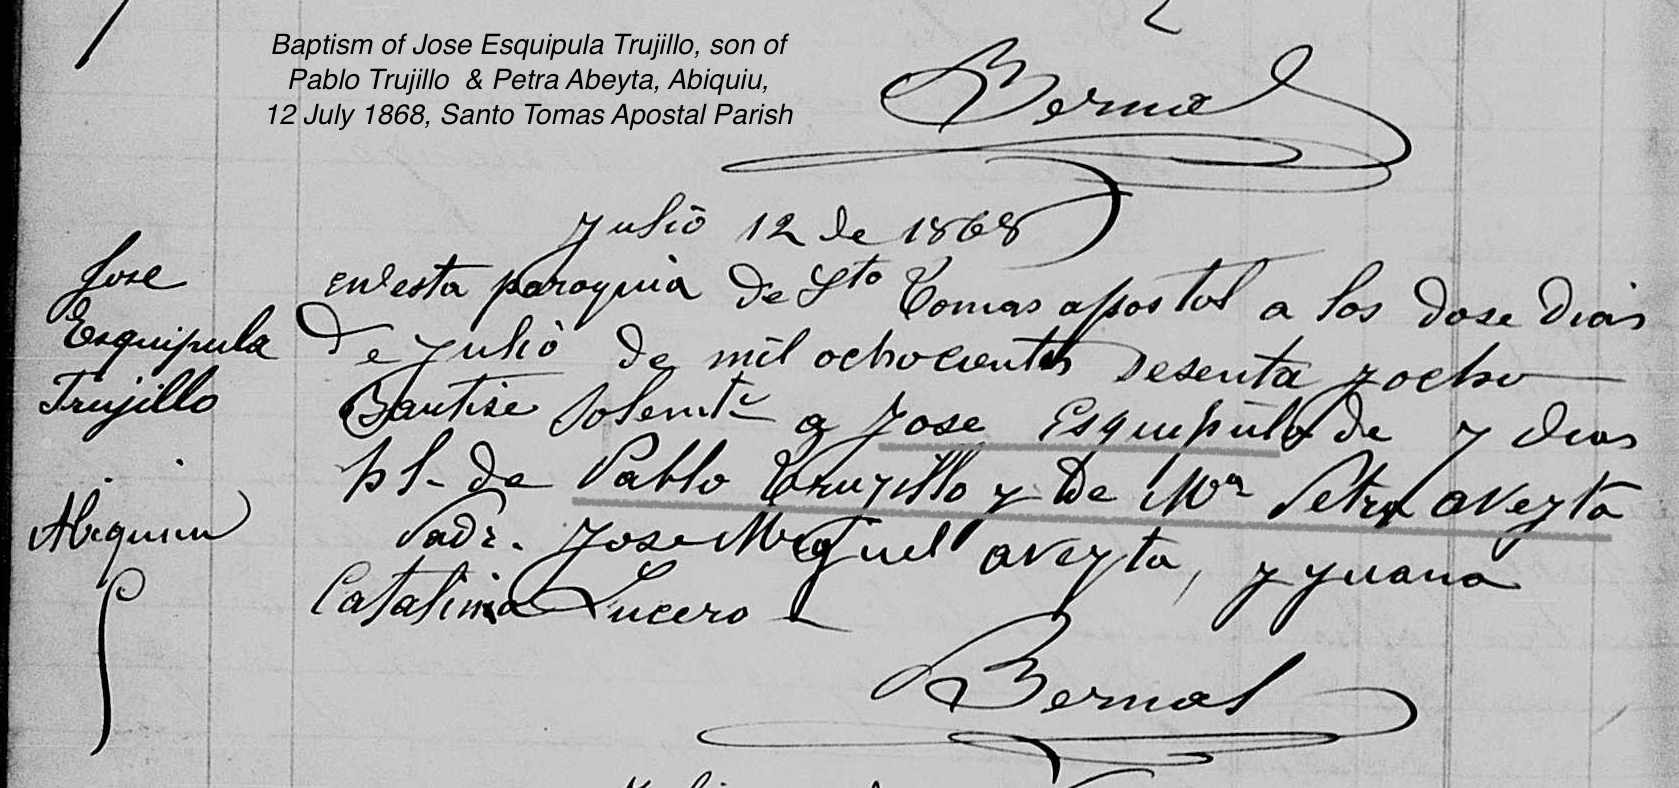 Baptism of Jose Esquipula Trujillo, son of
Pablo Trujillo & Petra Abeyta, Abiquiu,
12 July 1868, Santo Tomas Apostal Parish
Bernal
Julio 12 de 1868
Jose
Esquipula
Trujillo
Abiquiu
en esta paroquia de Sto Tomas apostol a los dose dias
de Julio de mil ochocientos sesenta y ocho
Bautise solemte a Jose Esquipula de 7 dias
h l. de Pablo Trujillo y de Ma Petra aveyta
Padr. Jose Miguel aveyta, y Juana
Catalina Lucero
Bernal